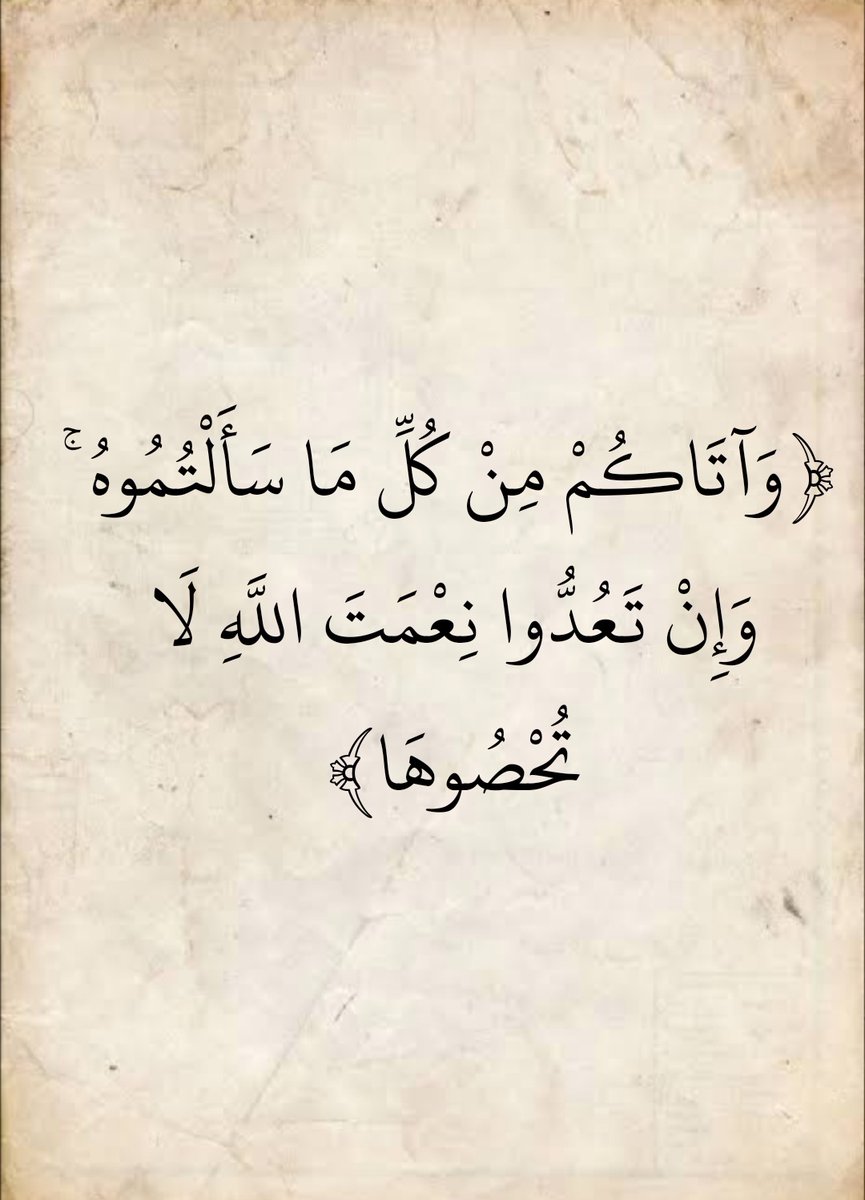 ﴿وَآتَاكُمْ مِنْ كُلِّ مَا سَأَلْتُمُوهُ ۚ
وَإِنْ تَعُدُّوا نِعْمَتَ اللَّهِ لَا
تُحْصُوهَا﴾